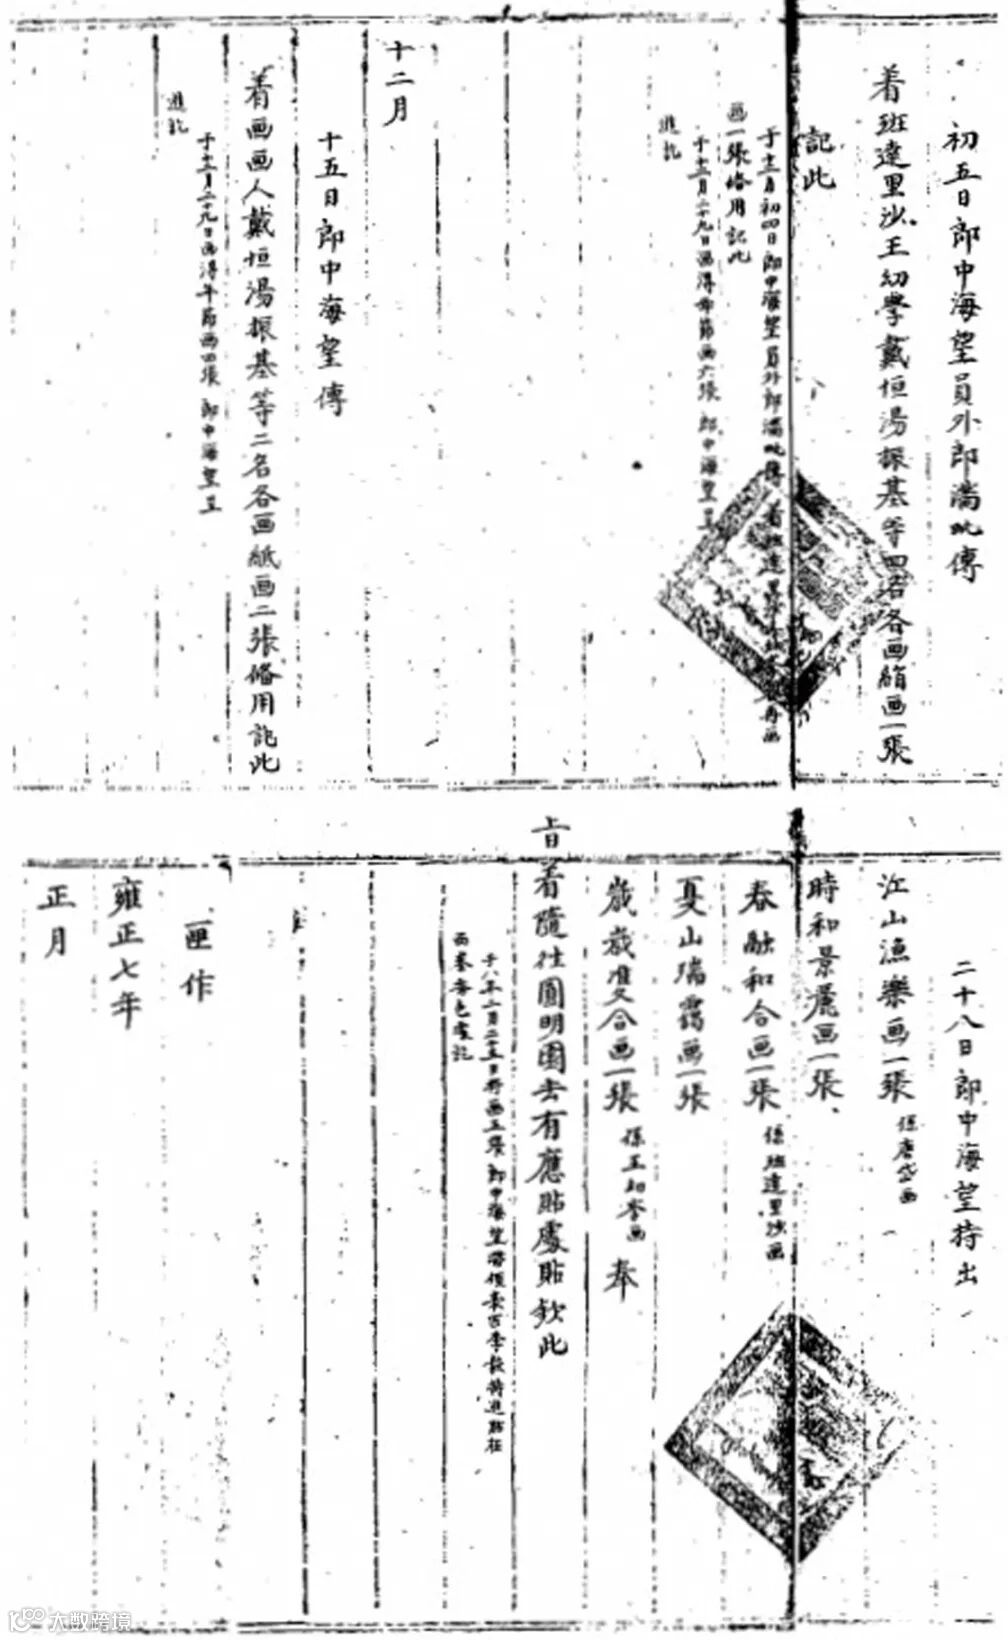 初五日郎中海望員外郎滿毗傳
着班達里沙王幼學戴恒湯振基等四名各画絹画一張
記此
于十二月初四日郎中海望員外郎滿毗傳着班達里沙
再画
画一張俻用記此
于十二月二十九日画得年節画六張郎中海望呈
進訖
十二月
十五日郎中海望傳
着画画人戴恒湯振基等二名各画紙画二張俻用記此
于十二月二十九日画得年節画四張郎中海望呈
進訖
二十八日郎中海望持出
江山漁樂画一張 係唐岱画
時和景麗画一張
春融和合画一張 係班達里沙画
夏山瑞靄画一張
歲歲雙合画一張 係王幼學画 奉
旨着隨往圓明園去有應貼處貼欽此
于八年二月二十五日将画五張郎中海望帶領
進貼在
西峯秀色處訖
匣作
雍正七年
正月
大数跨境